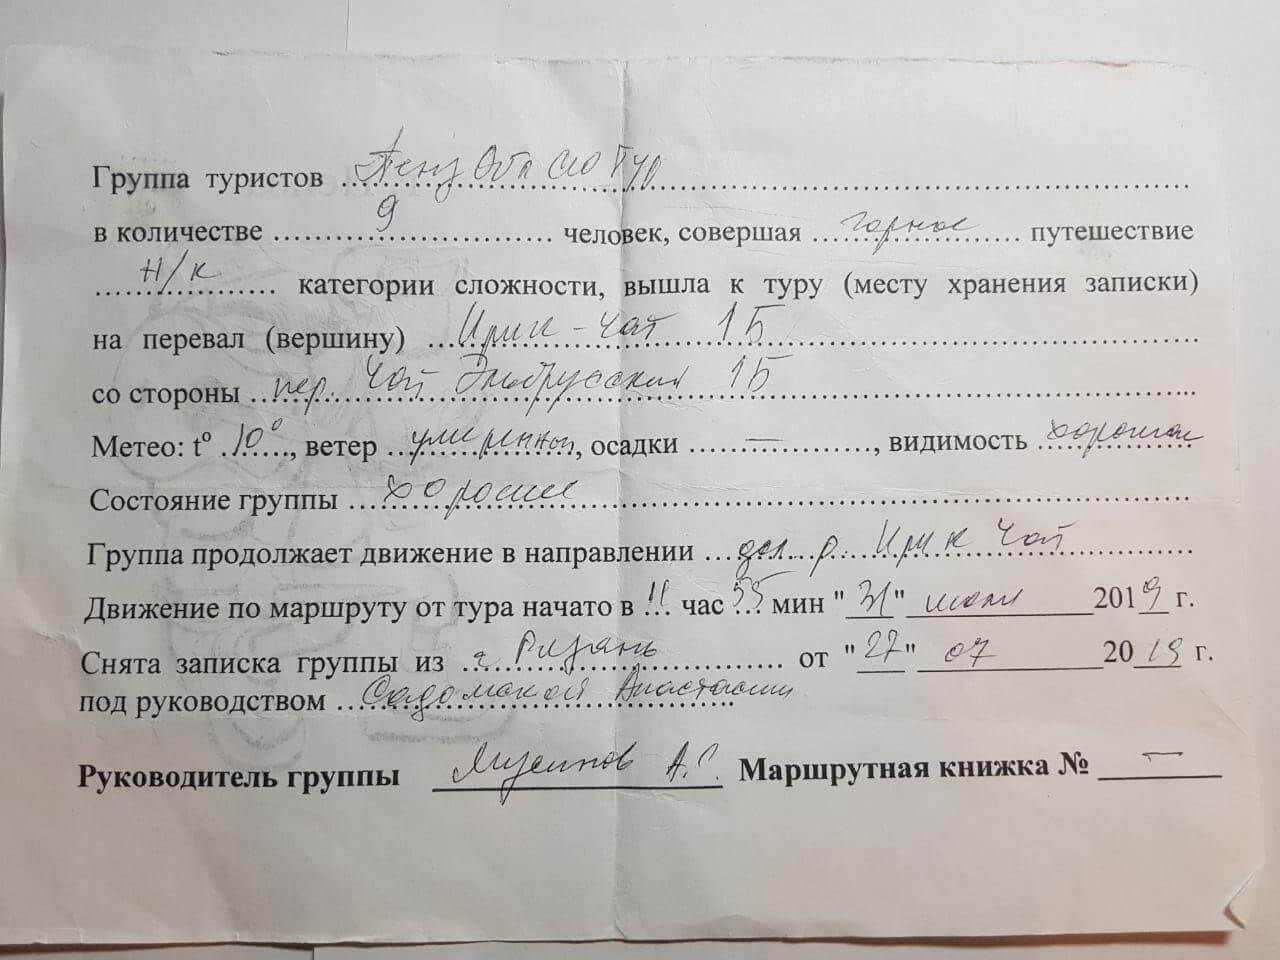 Группа туристов ПензОблСЮТур
в количестве 9 человек, совершая горное путешествие
н/к категории сложности, вышла к туру (месту хранения записки)
на перевал (вершину) Ирик-Чат 1Б
со стороны пер. Чат Эльбрусский 1Б
Метео: t° 10°, ветер умеренный, осадки —, видимость хорошая
Состояние группы хорошее
Группа продолжает движение в направлении дол. р. Ирик Чат
Движение по маршруту от тура начато в 11 час 55 мин "31" июля 2019 г.
Снята записка группы из г. Рязань от "27" 07 2019 г.
под руководством Садомской Анастасии
Руководитель группы А.С. Маршрутная книжка № —